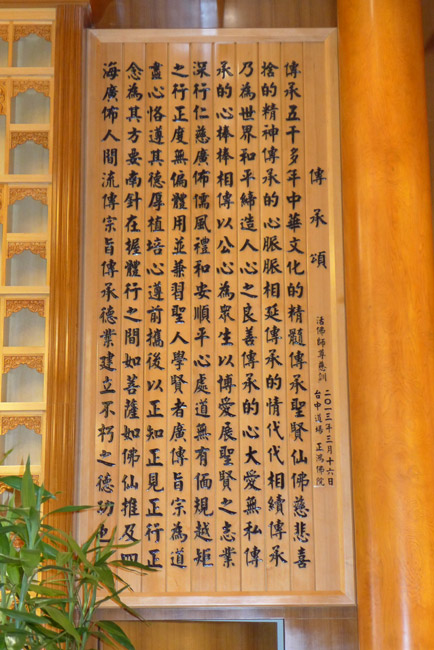 傳承頌
活佛師尊慈訓
二〇一三年三月十六日
台中道場 正鴻佛院
傳承五千多年中華文化的精髓傳承聖賢仙佛慈悲喜
捨的精神傳承的心脈脈相延傳承的情代代相續傳承
乃為世界和平締造人心之良善傳承的心大愛無私傳
承的心棒棒相傳以公心為眾生以博愛展聖賢之志業
深行仁慈廣佈儒風禮和安順平心處道無有偭規越矩
之行正度無偏體用並兼習聖人學賢者廣傳旨宗為道
盡心恪遵其德厚植培心遵前攜後以正知正見正行正
念為其方要南針在握體行之間如菩薩如佛仙推及四
海廣佈人間流傳宗旨傳承德業建立不朽之德功也